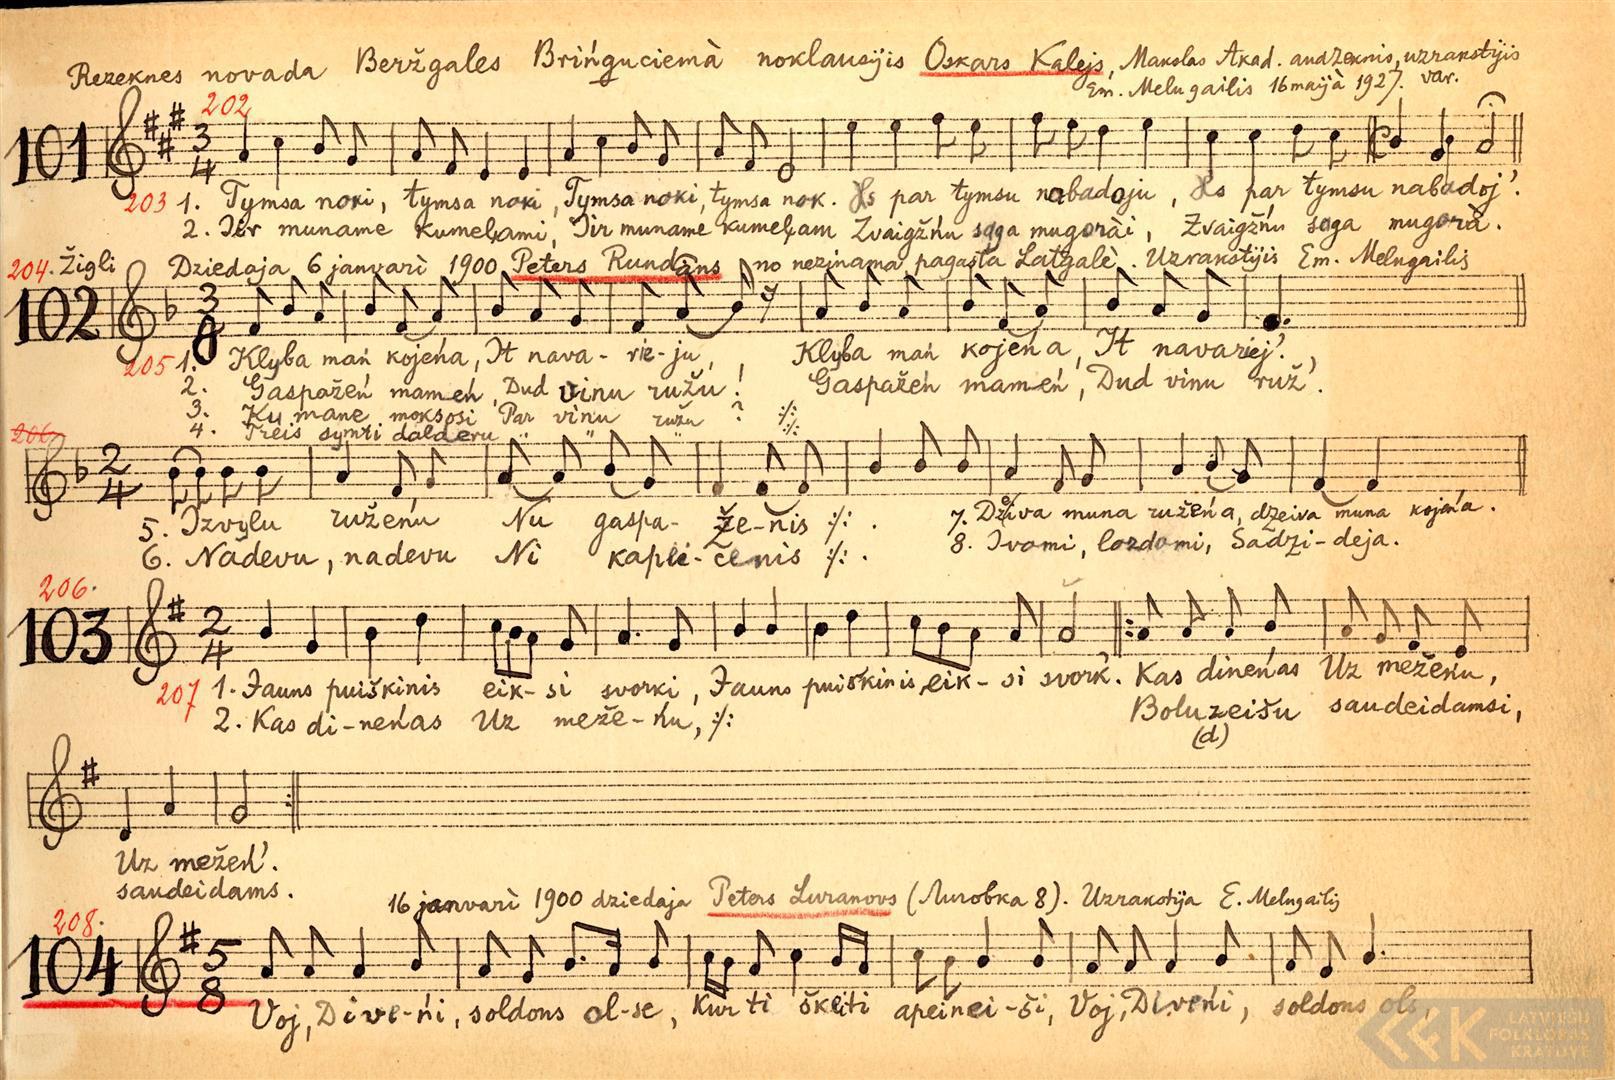 Rezeknes novada Beržgales Brińguciemà noklausijis Oskars Kalejs, Makslas Akad. audzeknis, uzrakstijis
Em. Melngailis 16 maijà 1927. var.
202
101
203 1. Tymsa noki, tymsa noki, Tymsa noki, tymsa nok. Es par tymsu nabadoju, Es par tymsu nabadoj’.
2. Jir muname kumeļami, Jir muname kumeļam Zvaigžńu saga mugorài, Zvaigžńu saga mugorà.
204. Žigli Dziedaja 6 janvarì 1900 Peters Rundāns no nezinama pagasta Latgalè. Uzrakstijis Em. Melngailis
102
205 1. Klyba mań kojeńa, It nava-rie-ju, Klyba mań kojeńa, It navariej’.
2. Gaspažeń mameń, Dud vinu ružu! Gaspažeń mameń, Dud vinu ruž’.
3. Ku mane moksosi Par vinu ružu ? :/:
4. Treis symti dalderu " " "
206
5. Izvylu ružeńu Nu gaspa-že-nis :/: . 7. Dzeiva muna ružeńa, dzeiva muna kojeńa.
6. Nadevu, nadevu Ni kapei-čenis :/: . 8. Ivomi, lozdomi, Sadzi-deja.
206.
103
207 1. Jauns puiškinis eik-si svorki, Jauns puiškinis, eik-si svork’. Kas dineńas Uz mežeńu,
2. Kas di-neńas Uz meže-ńu, :/: Boluzeišu saudeidamsi,
(d)
Uz mežeń’.
saudeidams.
16 janvarì 1900 dziedaja Peters Luranovs (Лиговка 8). Uzrakstija E. Melngailis
208.
104
Voj, Dive-ńi, soldons ol-se, Kur ti škeiti apeinei-ši, Voj, Diveńi, soldons ols,
LFK LATVIEŠU
FOLKLORAS
KRĀTUVE